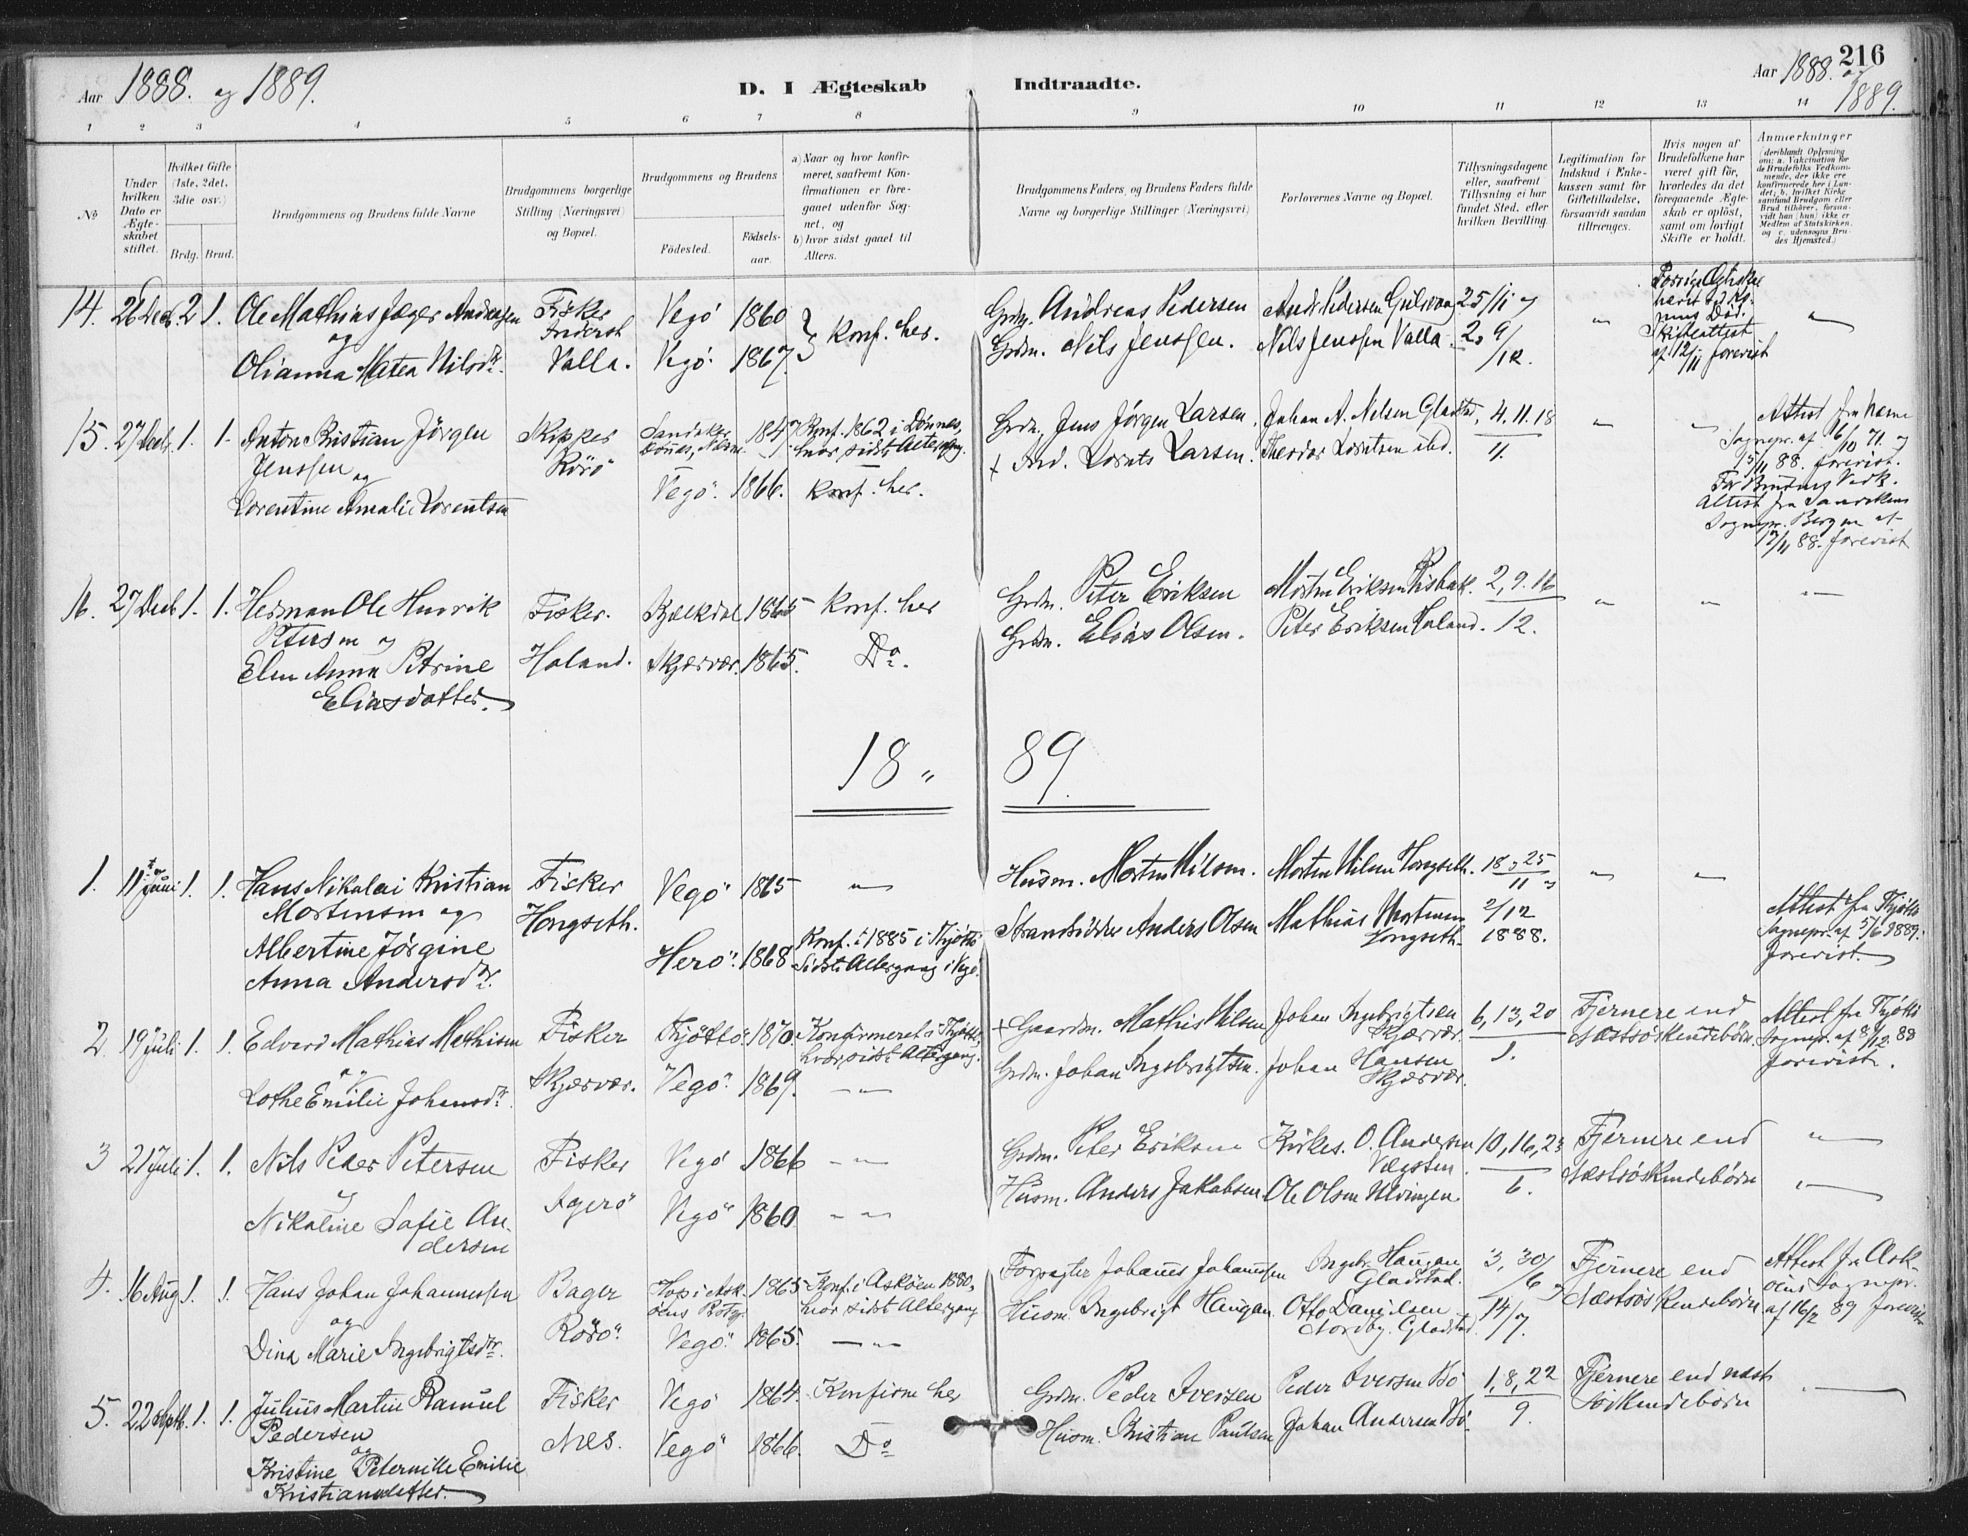 216
Aar 1888. og 1889.
D. I Ægteskab Indtraadte.
Aar 1888. og 1889.
1 2 3 4 5 6 7 8 9 10 11 12 13 14
No
Under hvilken Dato er Ægteskabet stiftet.
Hvilket Gifte (1ste, 2det, 3die osv.)
Brdg. Brud.
Brudgommens og Brudens fulde Navne
Brudgommens borgerlige Stilling (Næringsvei) og Bopæl.
Brudgommens og Brudens
Fødested.
Fødselsaar.
a) Naar og hvor konfirmeret, saafremt Konfirmationen er foregaaet udenfor Sognet, og
b) hvor sidst gaaet til Alters.
Brudgommens Faders og Brudens Faders fulde Navne og borgerlige Stillinger (Næringsvei)
Forlovernes Navne og Bopæl.
Tillysningsdagene eller, saafremt Tillysning ei har fundet Sted, efter hvilken Bevilling.
Legitimation for Indskud i Enkekassen samt for Giftetilladelse, forsaavidt saadan tiltrænges.
Hvis nogen af Brudefolkene har været gift før, hvorledes da det foregaaende Ægteskab er opløst, samt om lovligt Skifte er holdt.
Anmærkninger (deriblandt Oplysning om: a. Vakcination for de Brudefolks Vedkommende, der ikke ere konfirmerede her i Landet; b. hvilket Kirkesamfund Brudgom eller Brud tilhører, forsaavidt han (hun) ikke er Medlem af Statskirken, og c. udensogns Brudes Hjemsted.)
14. 26 Decb. 2 1. Ole Mathias Jæger Andreassen og
Olianna Matea Nilsdtr.
Fisker
Valla.
Vegø 1860
Vegø. 1867.
Konf. her.
Grdm. Andreas Pedersen
Grdm. Nils Jenssen.
Andr. Pedersen
Nils Jenssen Valla.
25/11 og
2, 9/12.
Skifteattest
af 12/11 forevist
15. 27 Decb. 1. 1. Anton Kristian Jørgen
Jenssen og
Lorentine Amalie Lorentsen
Skipper
Rörö
1847
Vegø. 1866.
Konf. 1862 i Dønnes,
hvor sidst Altergang.
Konf. her.
Grdm. Jens Jørgen Larsen.
+ Ind. Lornts Larsen.
Johan A. Nelsen Gladstad
Theodor Lorntsen ibd.
4. 11. 18
11.
Attest fra
Sognepr. af 16/10 71. og
15/11 88. forevist.
For Brudens Vedk.
Attest fra Sandvikens
Sognepr. Bergen af
17/11 88. forevist
16. 27 Decb. 1. 1. Herman Ole Henrik
Petersen og
Elen Anna Petrine
Eliasdatter.
Fisker.
Holand.
1865
Skjærvær. 1865.
Konf. her
Do.
Grdm. Peter Eriksen
Grdm. Elias Olsen.
Morten Eriksen
Peter Eriksen Holand.
2, 9. 16
12.
18 89.
1. 11te Juni 1. 1. Hans Nikolai Kristian
Mortensen og
Albertine Jørgine
Anna Andersdtr.
Fisker
Hongseth.
Vegø 1865
Herø. 1868
Konf. i 1885 i Thjøttø
Sidste Altergang i Vegø.
Husm. Morten Nilsen.
Strandsidder Anders Olsen
Morten Nilsen Hongseth.
Mathias Mortensen
Hongseth.
18, 25
11 og
2/12
1888.
Attest fra Thjøttø
Sognepr. af 5/6 1889.
forevist.
2. 19 Juli 1. 1. Edvard Mathias Mathisen
og
Lothe Emilie Johansdtr.
Fisker
Skjærvær.
Thjøttø. 1870.
Vegø. 1869.
Konfirmeret i Thjøttø,
hvor sidst Altergang.
+ Gaardm. Mathis Nilsen
Grdm. Johan Ingebrigtsen.
Johan Ingebrigtsen
Skjærvær.
Johan Hansen
Skjærvær.
6, 13, 20
1.
Fjernere end
Næstsøskendebørn.
Attest fra Thjøttø
Sognepr. af 8/12 88
forevist.
3 21 Juli 1. 1. Nils Peder Petersen
og
Nikoline Sofie An-
dersen
Fisker
Agerø
Vegø 1866
Vegø 1860
Grdm. Peter Eriksen
Husm. Anders Jakobsen
Kirkes. O. Andersen
Vægsten.
Ole Olsen Ulvingen
10, 16, 23
6.
Fjernere end
Næstsøskendebørn
4. 16 Aug 1. 1. Hans Johan Johannessen
og
Dina Marie Ingebrigtsdtr.
Bager
Rörö.
Hop i Ask-
øens Prstgj. 1865
Vegø. 1865.
Konf. i Askøen 1880,
hvor sidst Altergang
Forpagter Johannes Johannessen
Husm. Ingebrigt Haugan
Ingebr. Haugan
Gladstad.
Otto Danielsen
Nordby. Gladstad.
3, 30/6 og
14/7.
Fjernere end
Næstsøskendebørn
Attest fra Ask-
øens Sognepr.
af 16/2 89 forevist
5. 22 Septb. 1. 1. Julius Martin Ramul
Pedersen
og
Kristine Peternille Emilie
Kristiansdatter.
Fisker
Nes.
Vegø 1864.
Vegø 1866.
Konfirm her
Do
Grdm. Peder Iversen
Husm. Kristian Paulsen
Peder Iversen Bø
Johan Andersen Bø.
1, 8, 22
9.
Fjernere end næst-
søskendebørn